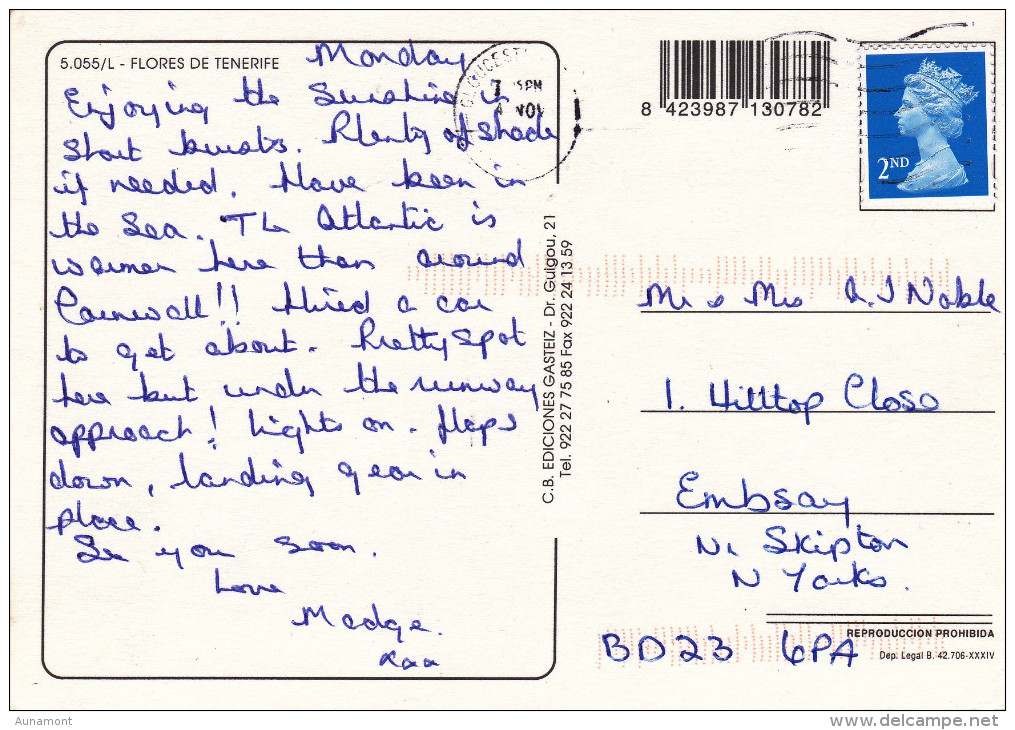 5.055/L - FLORES DE TENERIFE
Monday
Enjoying the Sunshine in
Short bursts. Plenty of shade
if needed. Have been in
the Sea. The Atlantic is
warmer here than around
Cornwall!! Hired a car
to get about. Pretty spot
here but under the runway
approach! Lights on. flaps
down, landing gear in
place.
See you soon.
Love
Madge.
xxx
C.B. EDICIONES GASTEIZ - Dr. Guigou, 21
Tel. 922 27 75 85 Fax 922 24 13 59
8 423987 130782
2ND
Mr & Mrs A. J Noble
1. Hilltop Close
Embsay
Nr Skipton
N Yorks.
BD23 6PA
REPRODUCCION PROHIBIDA
Dep. Legal B. 42.706-XXXIV
Aunamont
delcampe.net